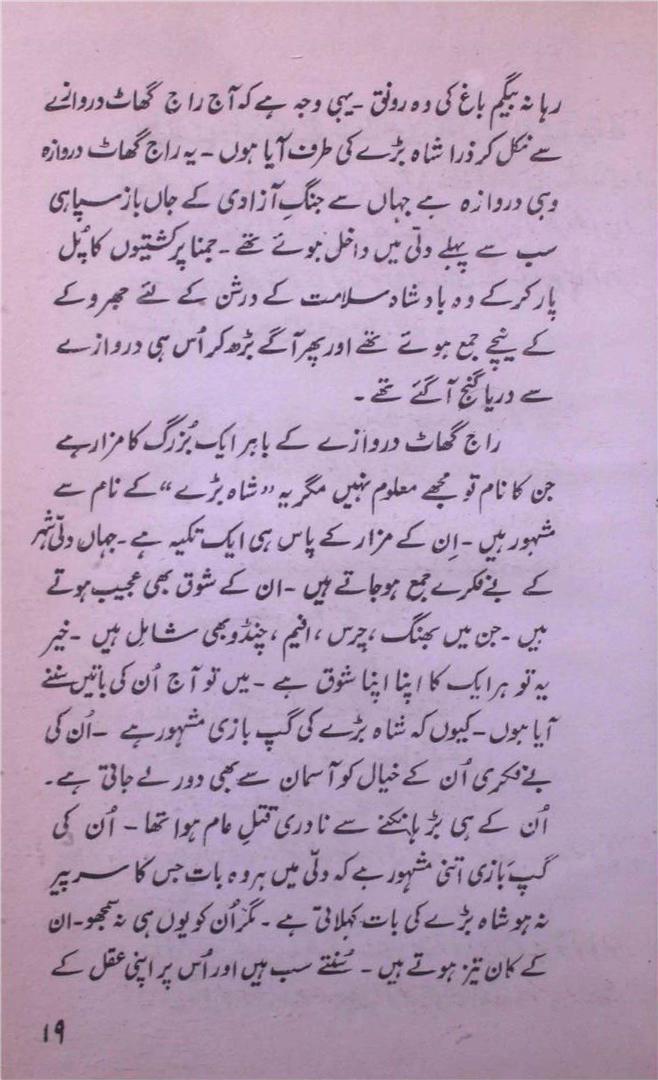 رہا نہ بیگم باغ کی وہ رونق ۔ یہی وجہ ہے کہ آج راج گھاٹ دروازے
سے نکل کر ذرا شاہ بڑے کی طرف آیا ہوں ۔ یہ راج گھاٹ دروازہ
وہی دروازہ ہے جہاں سے جنگِ آزادی کے جاں باز سپاہی
سب سے پہلے دلّی میں داخل ہوئے تھے ۔ جمنا پر کشتیوں کا پُل
پار کرکے وہ بادشاہ سلامت کے درشن کے لئے جھروکے
کے نیچے جمع ہوئے تھے اور پھر آگے بڑھ کر اُس ہی دروازے
سے دریا گنج آ گئے تھے ۔
راج گھاٹ دروازے کے باہر ایک بُزرگ کا مزار ہے
جن کا نام تو مجھے معلوم نہیں مگر یہ ”شاہ بڑے“ کے نام سے
مشہور ہیں ۔ اِن کے مزار کے پاس ہی ایک تکیہ ہے ۔ جہاں دلّی شہر
کے بے فکرے جمع ہو جاتے ہیں ۔ ان کے شوق بھی عجیب ہوتے
ہیں ۔ جن میں بھنگ ، چرس ، افیم ، چنڈو بھی شامِل ہیں ۔ خیر
یہ تو ہر ایک کا اپنا اپنا شوق ہے ۔ میں تو آج اُن کی باتیں سننے
آیا ہوں ۔ کیوں کہ شاہ بڑے کی گپ بازی مشہور ہے ۔ اُن کی
بے فکری اُن کے خیال کو آسمان سے بھی دور لے جاتی ہے ۔
اُن کے ہی بڑ ہانکنے سے نادری قتلِ عام ہوا تھا ۔ اُن کی
گپ بازی اتنی مشہور ہے کہ دلّی میں ہر وہ بات جس کا سر پیر
نہ ہو شاہ بڑے کی بات کہلاتی ہے ۔ مگر اُن کو یوں ہی نہ سمجھو ۔ ان
کے کان تیز ہوتے ہیں ۔ سُنتے سب ہیں اور اُس پر اپنی عقل کے
۱۹